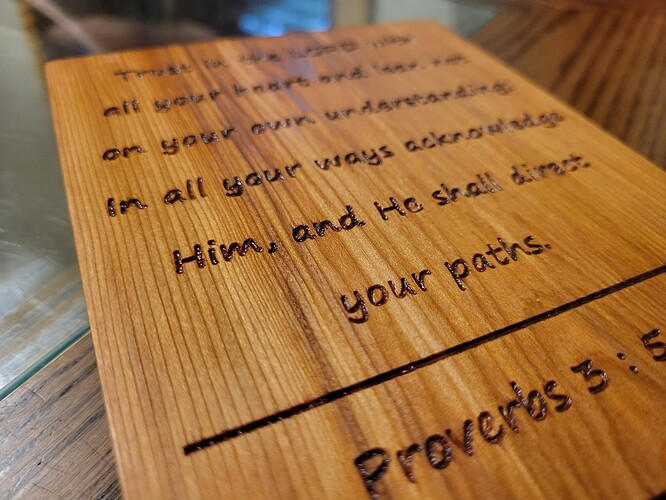 Trust in the LORD with
all your heart and lean not
on your own understanding.
In all your ways acknowledge
Him, and He shall direct
your paths.
Proverbs 3 : 5